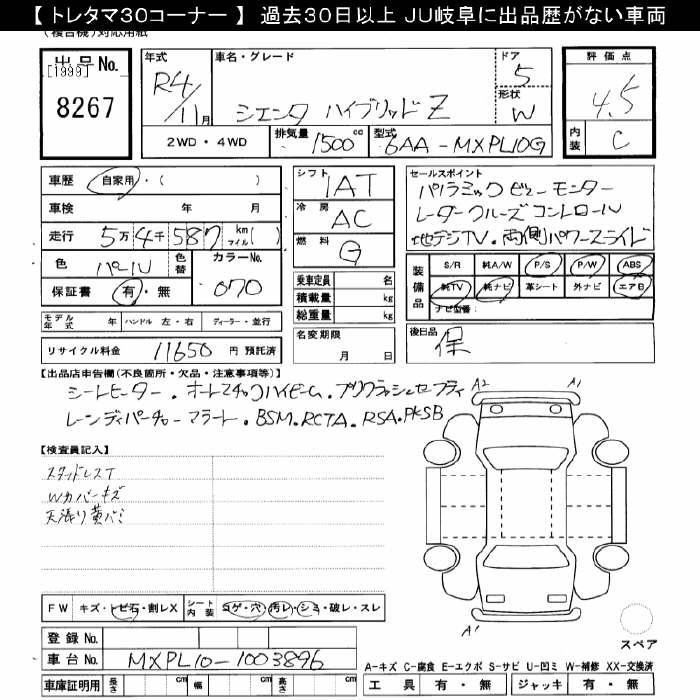 【トレタマ30コーナー 】 過去30日以上 JU岐阜に出品歴がない車両
(複合機)対応用紙
出品 No.
【1999】
8267
年式
R4/11月
車名・グレード
シエンタ ハイブリッド Z
ドア
5
形状
W
2WD・4WD
排気量
1500cc
型式
6AA-MXPL10G
評価点
4.5
内装
C
車歴
自家用・( )
車検 年 月
走行 5万4千587 km マイル( )
色 パール
色替
カラーNo.
070
保証書 有・無
シフト
IAT
冷房
AC
燃料
G
乗車定員 名
積載量 kg
総重量 kg
セールスポイント
パノラミックビューモニター
レーダークルーズコントロール
地デジTV・両側パワースライド
装備品
S/R 純A/W P/S P/W ABS
純TV 純ナビ 革シート 外ナビ エアB
ナビ型番:
モデル年式 年 ハンドル 左・右 ディーラー・並行
リサイクル料金 11650 円 預託済
名変期限
月 日
後日品
保
【出品店申告欄(不良箇所・欠品・注意事項等)】
シートヒーター・オートマチックハイビーム・プリクラッシュセーフティ
レーンディパーチャーアラート・BSM・RCTA・RSA・PKSB
【検査員記入】
スタッドレスT
Wカバーキズ
天張り黄バミ
A2 A1
A1
FW キズ・トビ石・割レX
シート内装 コゲ・穴・汚レ・シミ・破レ・スレ
登録 No.
車台 No. MXPL10-1003896
車庫証明用 長さ cm 幅 cm 高さ cm
スペア
A-キズ C-腐食 E-エクボ S-サビ U-凹ミ W-補修 XX-交換済
工具 有・無 ジャッキ 有・無